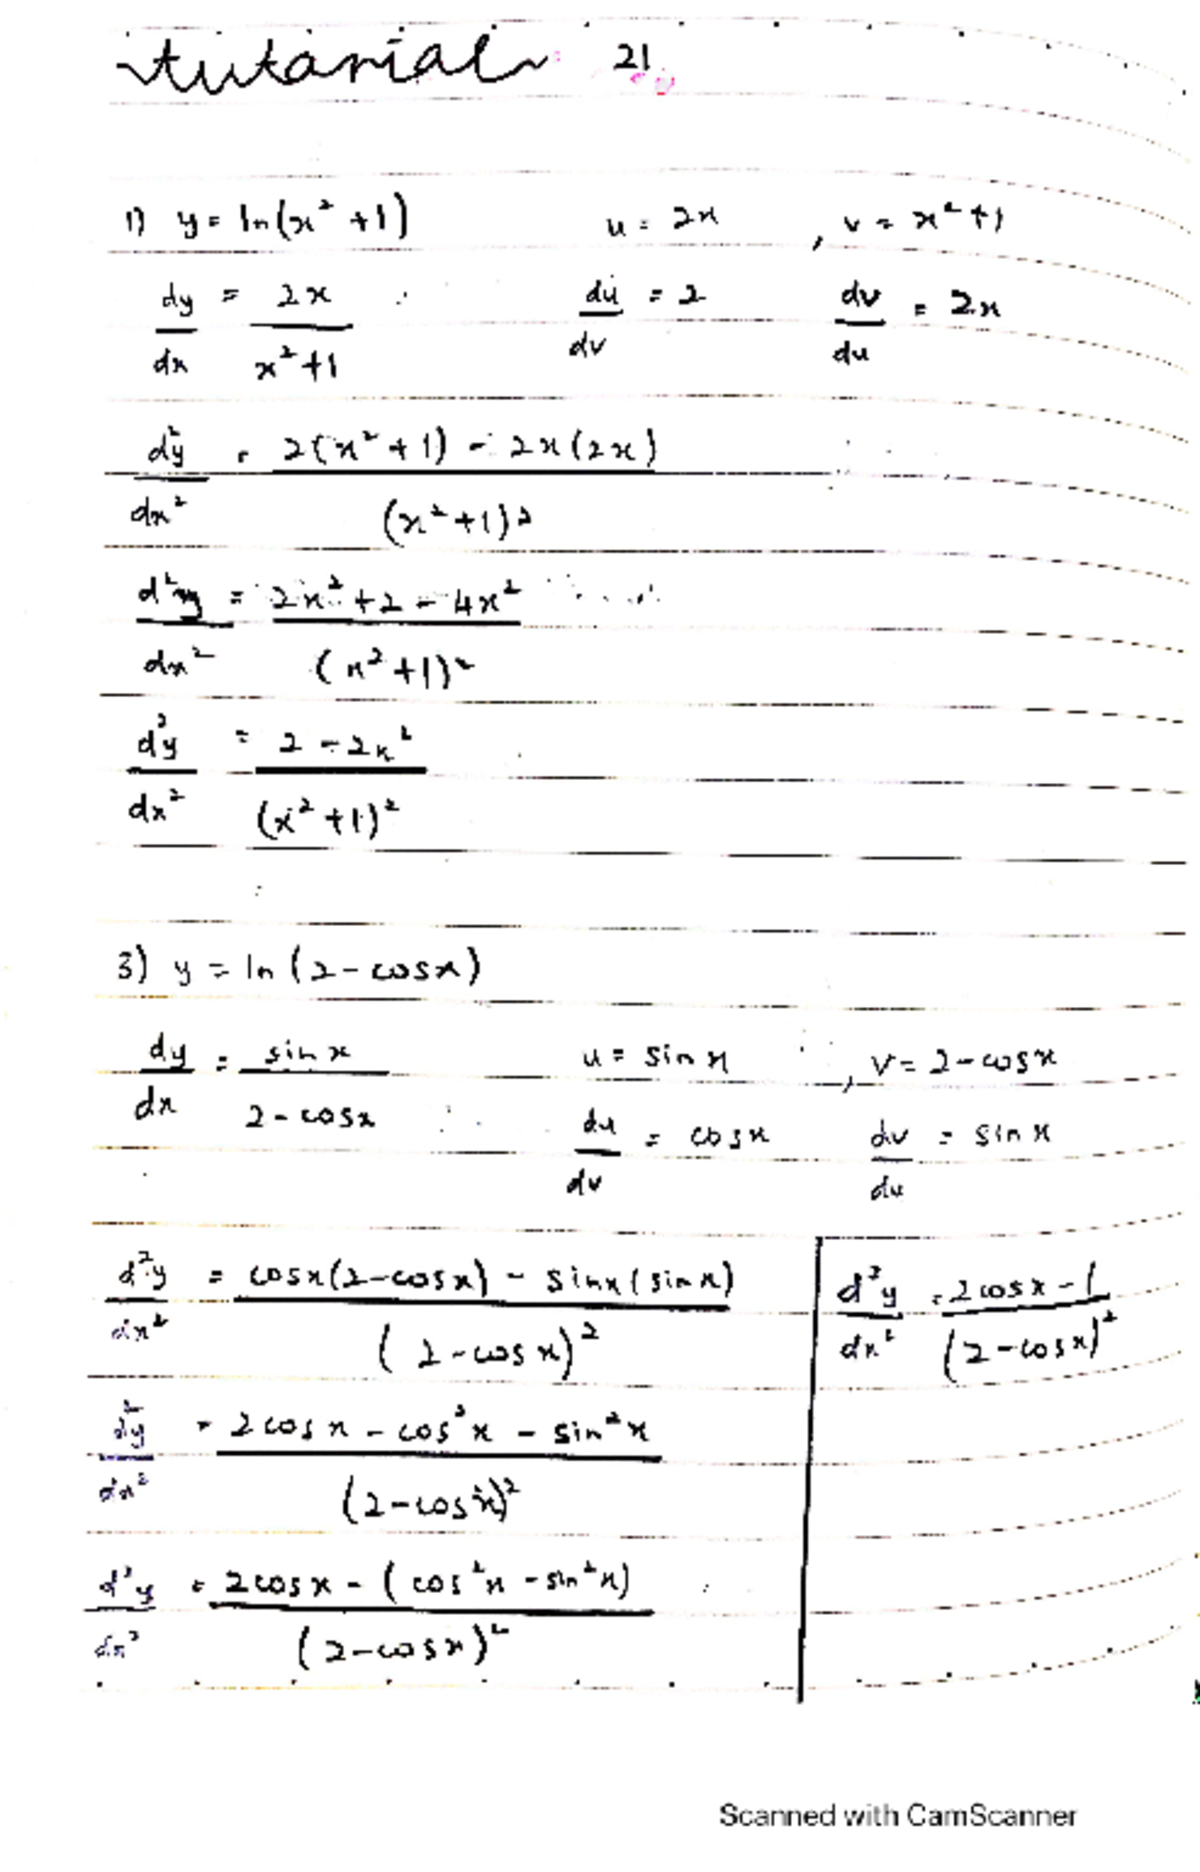 tutorial 21
1) y = ln(x² + 1) u = 2x , v = x² + 1
dy/dx = 2x/x² + 1 du/dv = 2 dv/du = 2x
d²y/dx² = 2(x² + 1) - 2x(2x)/(x² + 1)²
d²y/dx² = 2x² + 2 - 4x²/(x² + 1)²
d²y/dx² = 2 - 2x²/(x² + 1)²
3) y = ln(2 - cosx)
dy/dx = sin x/2 - cosx u = sin x , v = 2 - cosx
du/dv = cosx dv/du = sin x
d²y/dx² = cosx(2-cosx) - sinx(sinx)/(2-cosx)²
d²y/dx² = 2cosx - cos²x - sin²x/(2-cosx)²
d²y/dx² = 2cosx - (cos²x - sin²x)/(2-cosx)²
d²y/dx² = 2cosx - 1/(2-cosx)²
Scanned with CamScanner